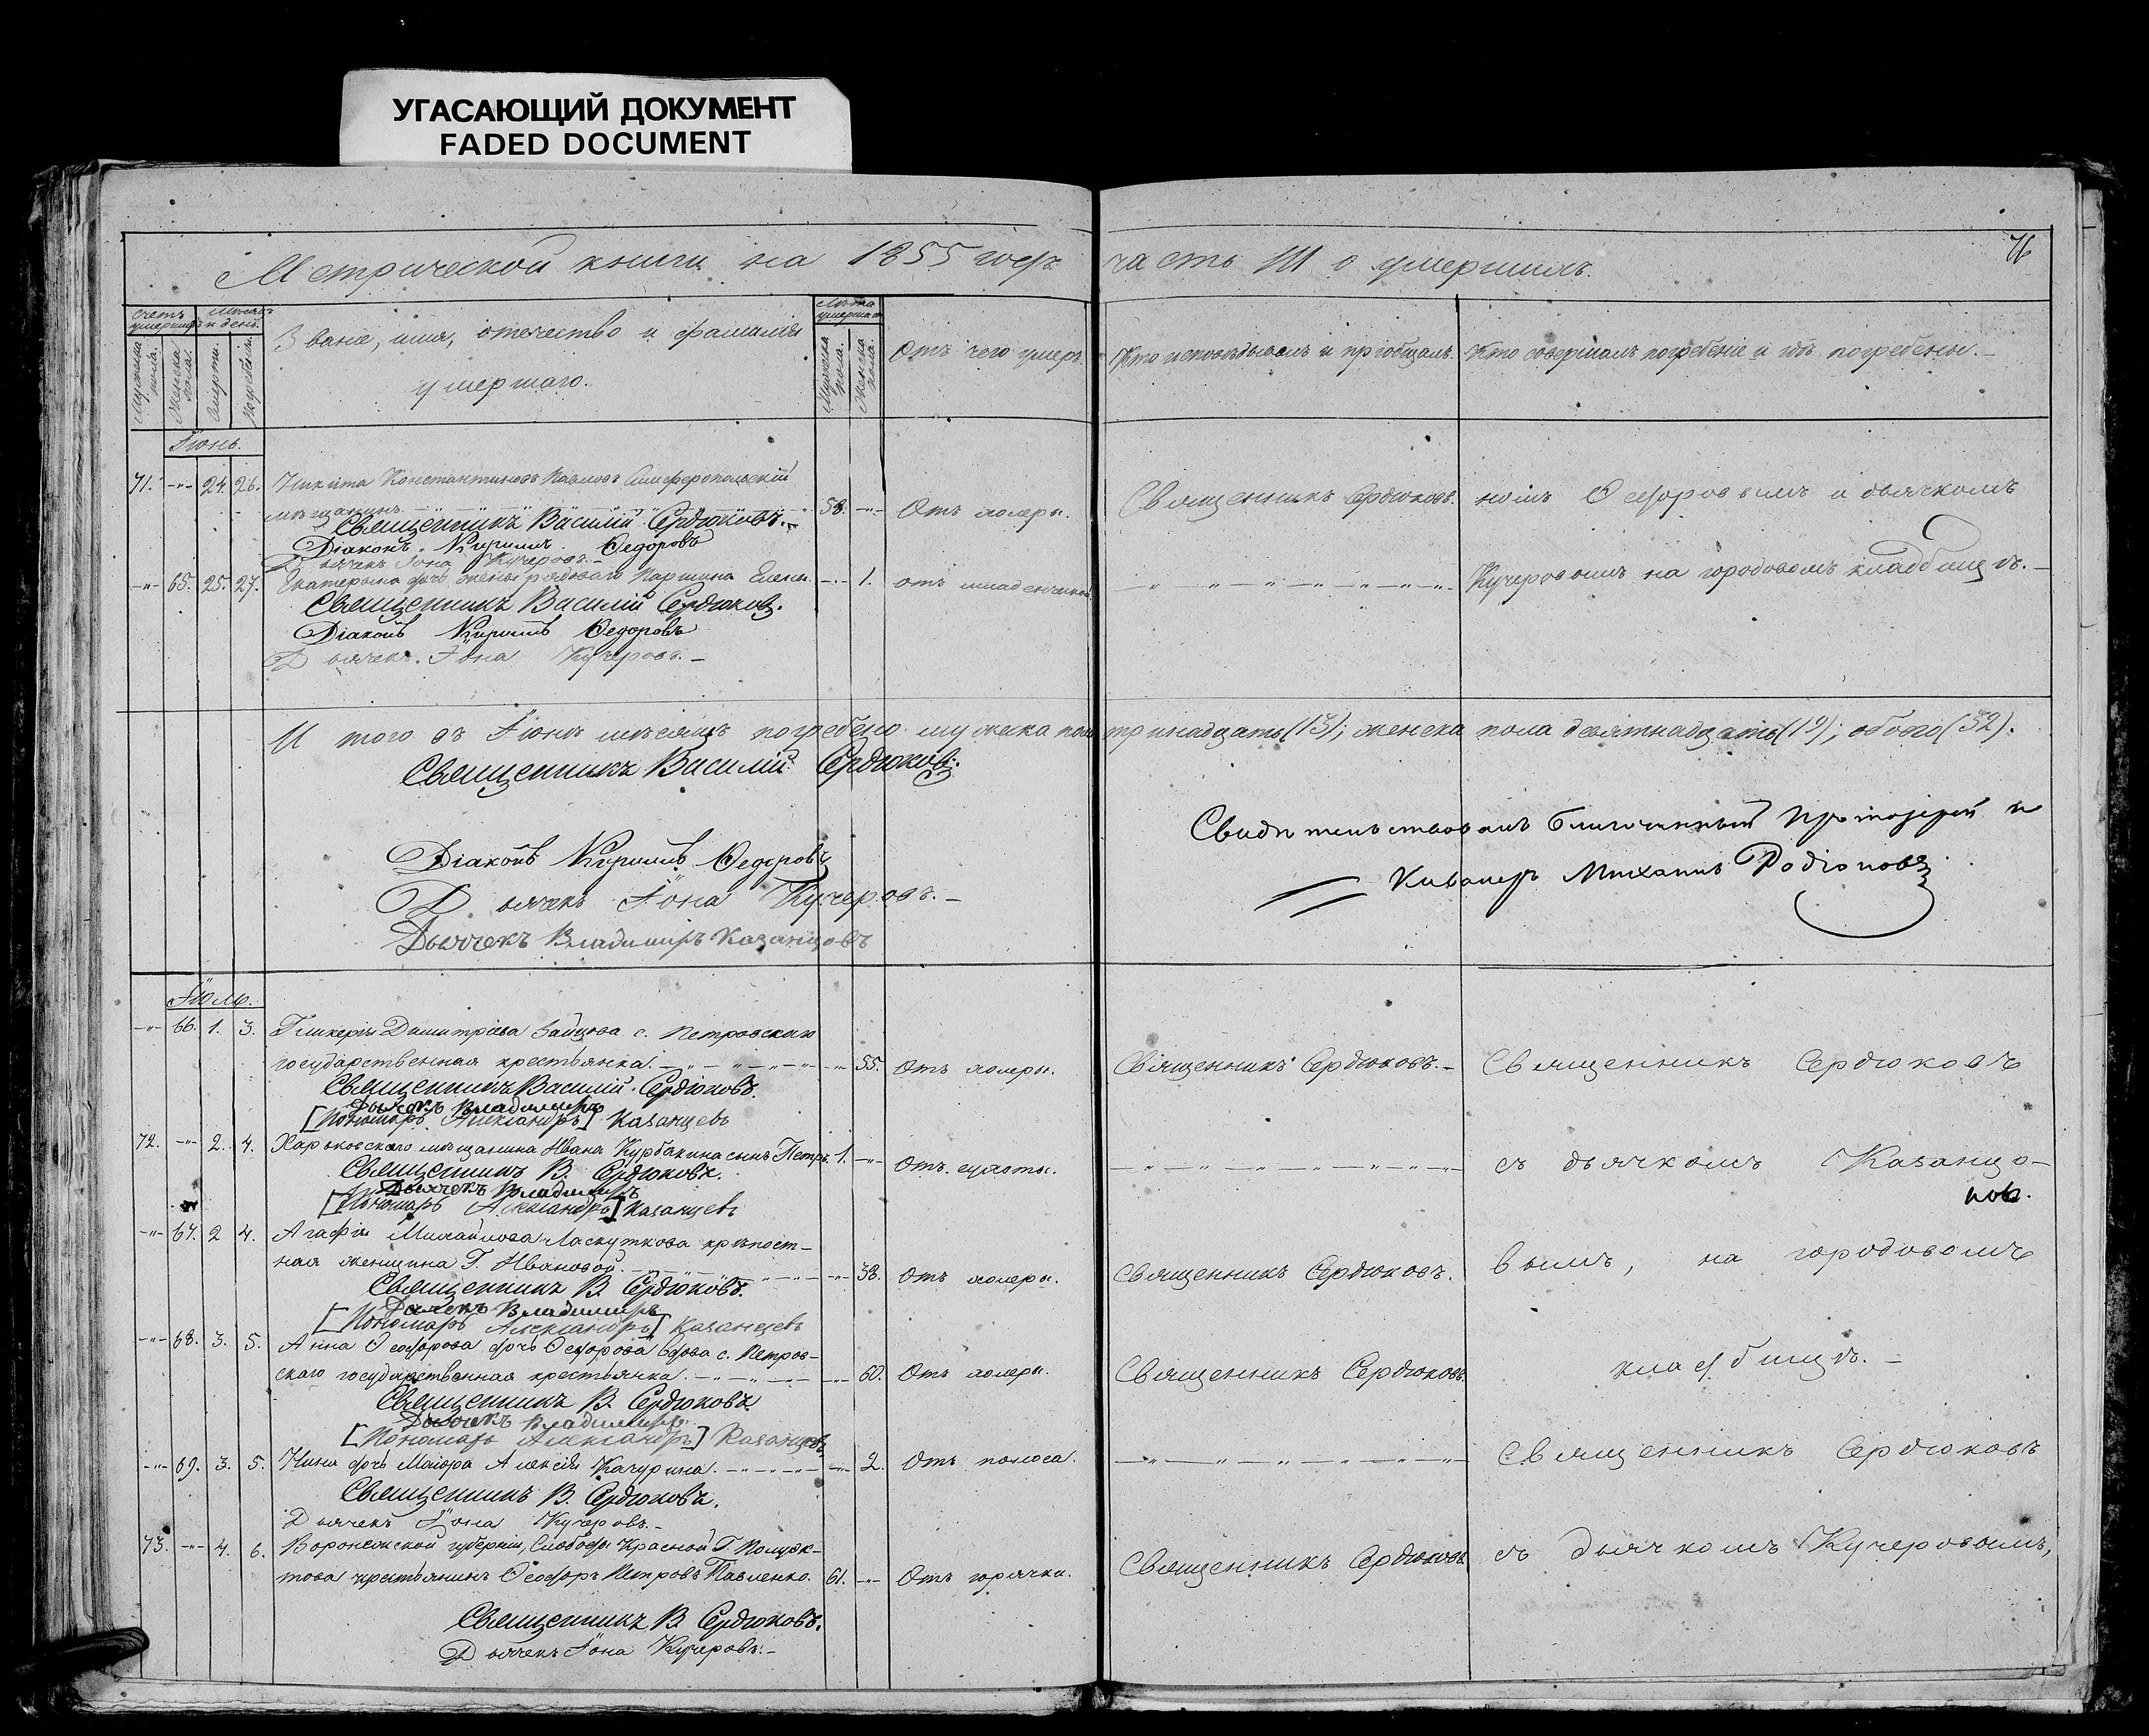 УГАСАЮЩИЙ ДОКУМЕНТ
FADED DOCUMENT
Метрической книги на 1855 годъ часть III о умершихъ.
76
Счетъ умершихъ
Мѣсяцъ и день.
Званіе, имя, отечество и фамилія
умершаго.
Лѣта умершаго
Отъ чего умеръ.
Кто исповѣдывалъ и пріобщалъ.
Кто совершалъ погребеніе и гдѣ погребены.
Мужеска пола.
Женска пола.
Смерти.
Погребенія.
Мужеска пола.
Женска пола.
Іюнь.
71. -"- 24. 26. Никита Константиновъ Павловъ Симферопольскій
мѣщанинъ 58. -"- Отъ холеры. Священникъ Сердюковъ. номъ Ѳедоровымъ и дьячкомъ
Священникъ Василій Сердюковъ.
Діаконъ Кириллъ Ѳедоровъ
Дьячекъ Іона Кучеровъ.
-"- 65. 25. 27. Екатерина дочь жены рядоваго Паршина Елены. -"- 1. отъ младенческой Кучеровымъ на городовомъ кладбищѣ.
Священникъ Василій Сердюковъ.
Діаконъ Кириллъ Ѳедоровъ
Дьячекъ Іона Кучеровъ.
Итого въ Іюнѣ мѣсяцѣ погребено мужеска пола тринадцать (13); женска пола девятнадцать (19); обоего (32).
Священникъ Василій Сердюковъ.
Свидѣтельствовалъ благочинный Протоіерей и
Кавалеръ Михаилъ Родіоновъ
Діаконъ Кириллъ Ѳедоровъ
Дьячекъ Іона Кучеровъ.
Дьячекъ Владимиръ Казанцовъ
Іюль.
-"- 66. 1. 3. Гликерія Димитріева Зайцова с. Петровскаго
государственная крестьянка. -"- 55. Отъ холеры. Священникъ Сердюковъ. Священникъ Сердюковъ
Священникъ Василій Сердюковъ.
Дьячекъ Владимиръ
[Пономарь Александръ] Казанцевъ
72. -"- 2. 4. Харьковскаго мѣщанина Ивана Курбакина сынъ Петръ. 1. -"- Отъ сухоты. съ дьячкомъ Казанцо-
Священникъ В. Сердюковъ.
Дьячекъ Владимиръ
[Пономарь Александръ] Казанцевъ
-"- 67. 2 4. Агафія Михайлова Ласкуткова крѣпост-
ная женщина Г. Ивановой. -"- 38. Отъ холеры. Священникъ Сердюковъ. вымъ, на городовомъ
Священникъ В. Сердюковъ.
Дьячекъ Владимиръ
[Пономарь Александръ] Казанцевъ
-"- 68. 3. 5. Анна Ѳеодорова дочь Ѳедорова вдова с. Петров-
скаго государственная крестьянка. -"- 60. Отъ холеры. Священникъ Сердюковъ кладбищѣ.
Священникъ В. Сердюковъ.
Дьячекъ Владимиръ
[Пономарь Александръ] Казанцевъ
-"- 69. 3. 5. Нина дочь Маіора Алексѣя Качурина. -"- 2. Отъ поноса. Священникъ Сердюковъ
Священникъ В. Сердюковъ.
Дьячекъ Іона Кучеровъ.
73. -"- 4. 6. Воронежской губерніи, Слободы Красной Г.
крестьянинъ Ѳеодоръ Петровъ Павленко. 61. -"- Отъ горячки. Священникъ Сердюковъ съ дьячкомъ Кучеровымъ,
Священникъ В. Сердюковъ.
Дьячекъ Іона Кучеровъ.